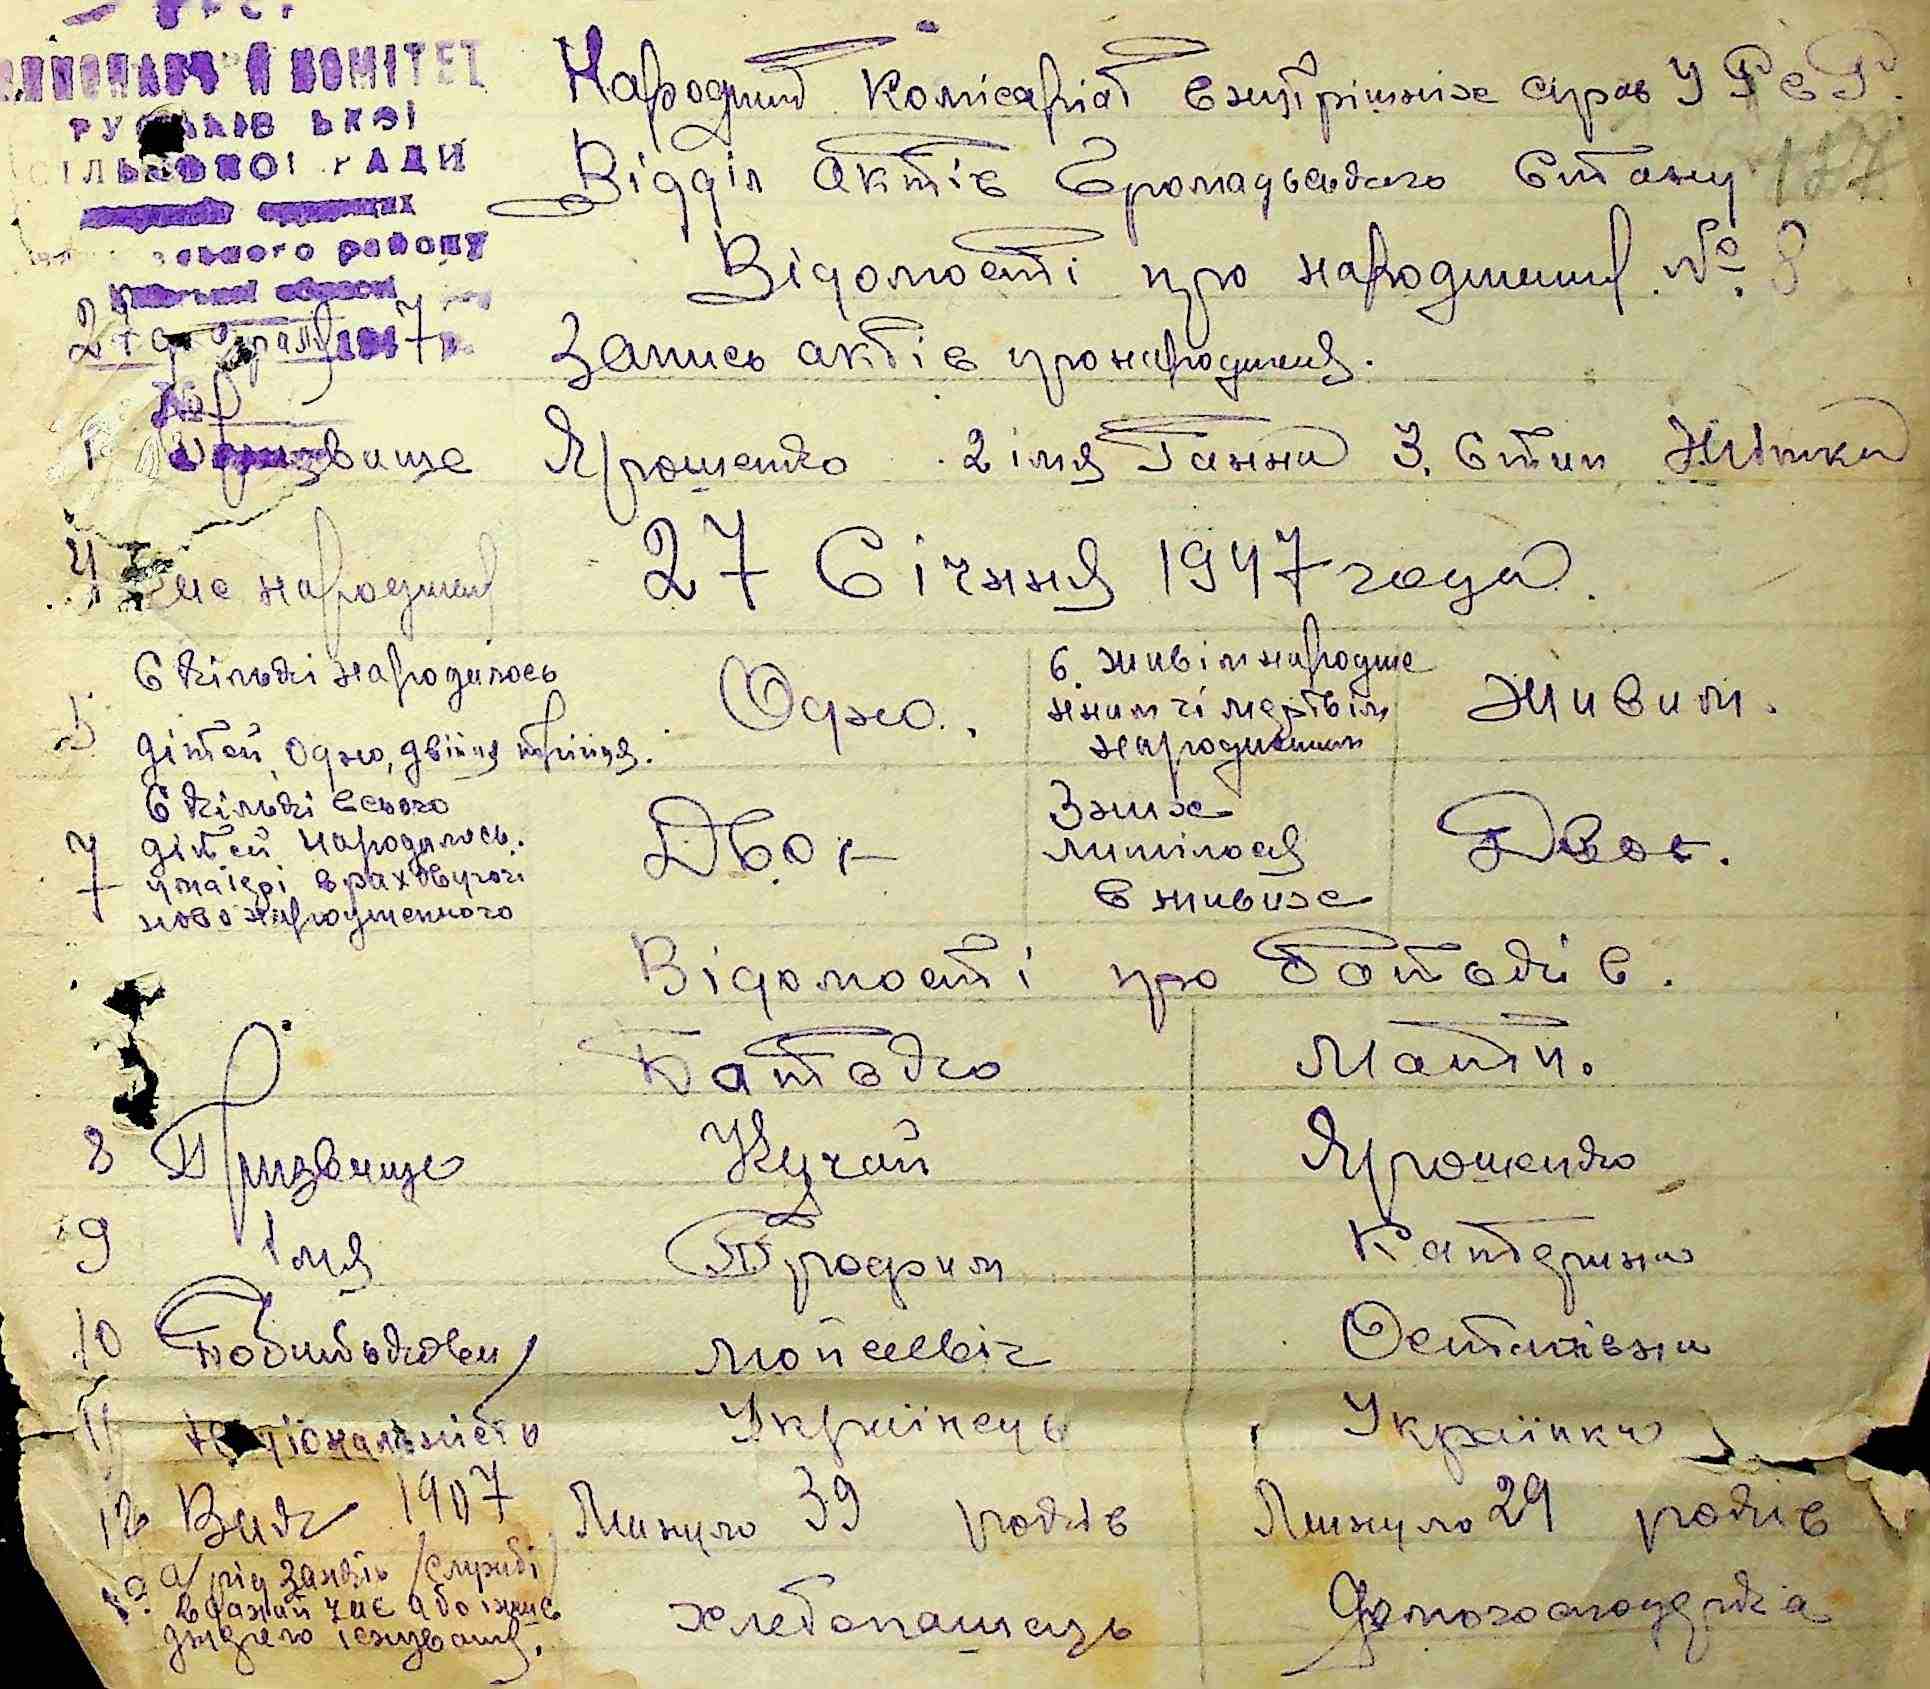 КОМІТЕТ
СІЛЬСЬКОЇ РАДИ
району
1947
Народний Комісаріат внутрішніх справ У Р С Р.
127
Відділ Актів Громадьського Стану
Відомості про народження. № 8
Запись актів про народження.
1 Призвище Ярошенко 2 імя Ганна 3. Стат Жінка
4 Час народження 27 Січння 1947 года.
5 Скількі народилось дітей, одно, двійня трійня. Одно. 6. живім народже нним чі мертвім народженим Живим.
7 Скількі всього дітей народилось у матері враховуючі новонародженного Двоє З них лишілося в живих Двоє.
Відомості про батьків.
Батько Мати.
8 Призвище Кучай Ярошенко
9 імя Трофим Катерина
10 Побатькові мойсеевіч Остапівна
11 Національність Українець Українка
12 Вик 1907 Минуло 39 років Минуло 29 років
13 а/ рід занять /служби/ в даний час або інше джерело існування. хлебопашець Домогосподарка